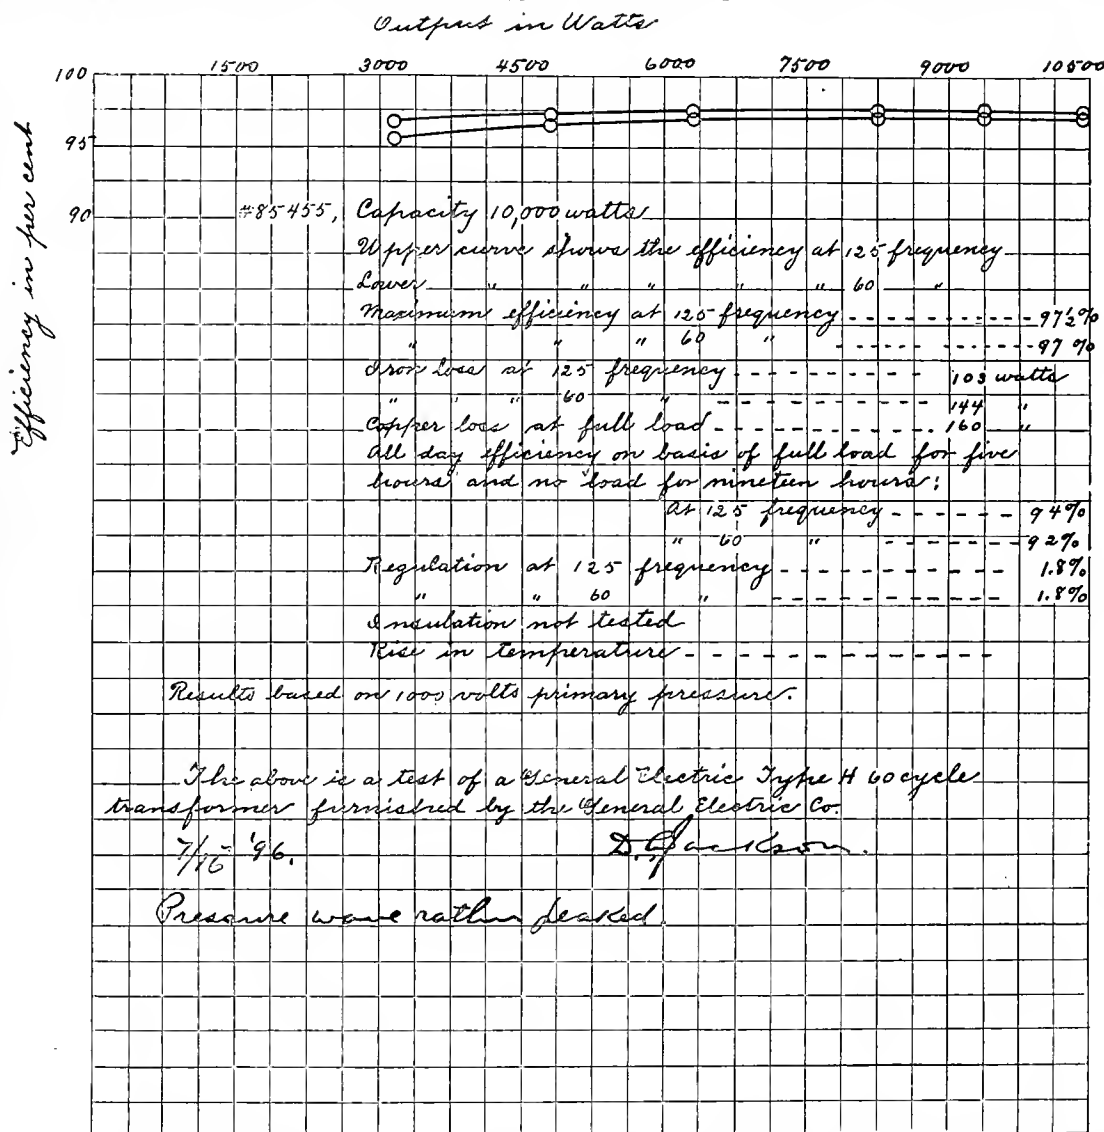 Output in Watts
1500 3000 4500 6000 7500 9000 10500
100
95
90
Efficiency in per cent
#85455, Capacity 10,000 watts
Upper curve shows the efficiency at 125 frequency
Lower " " " " " 60 "
Maximum efficiency at 125 frequency - - - - - - - - - - 97½%
" " " 60 " - - - - - - - - - - 97%
Iron loss at 125 frequency - - - - - - - - - - 103 watts
" " " 60 " - - - - - - - - - - 144 "
Copper loss at full load - - - - - - - - - - 160 "
All day efficiency on basis of full load for five
hours and no load for nineteen hours:
At 125 frequency - - - - - - - 94%
" 60 " - - - - - - - 92%
Regulation at 125 frequency - - - - - - - - - - 1.8%
" " 60 " - - - - - - - - - - 1.8%
Insulation not tested
Rise in temperature - - - - - - - - - - - - -
Results based on 1000 volts primary pressure.
The above is a test of a General Electric Type H 60 cycle
transformer furnished by the General Electric Co.
7/15 '96. D.C. Jackson.
Pressure wave rather peaked.